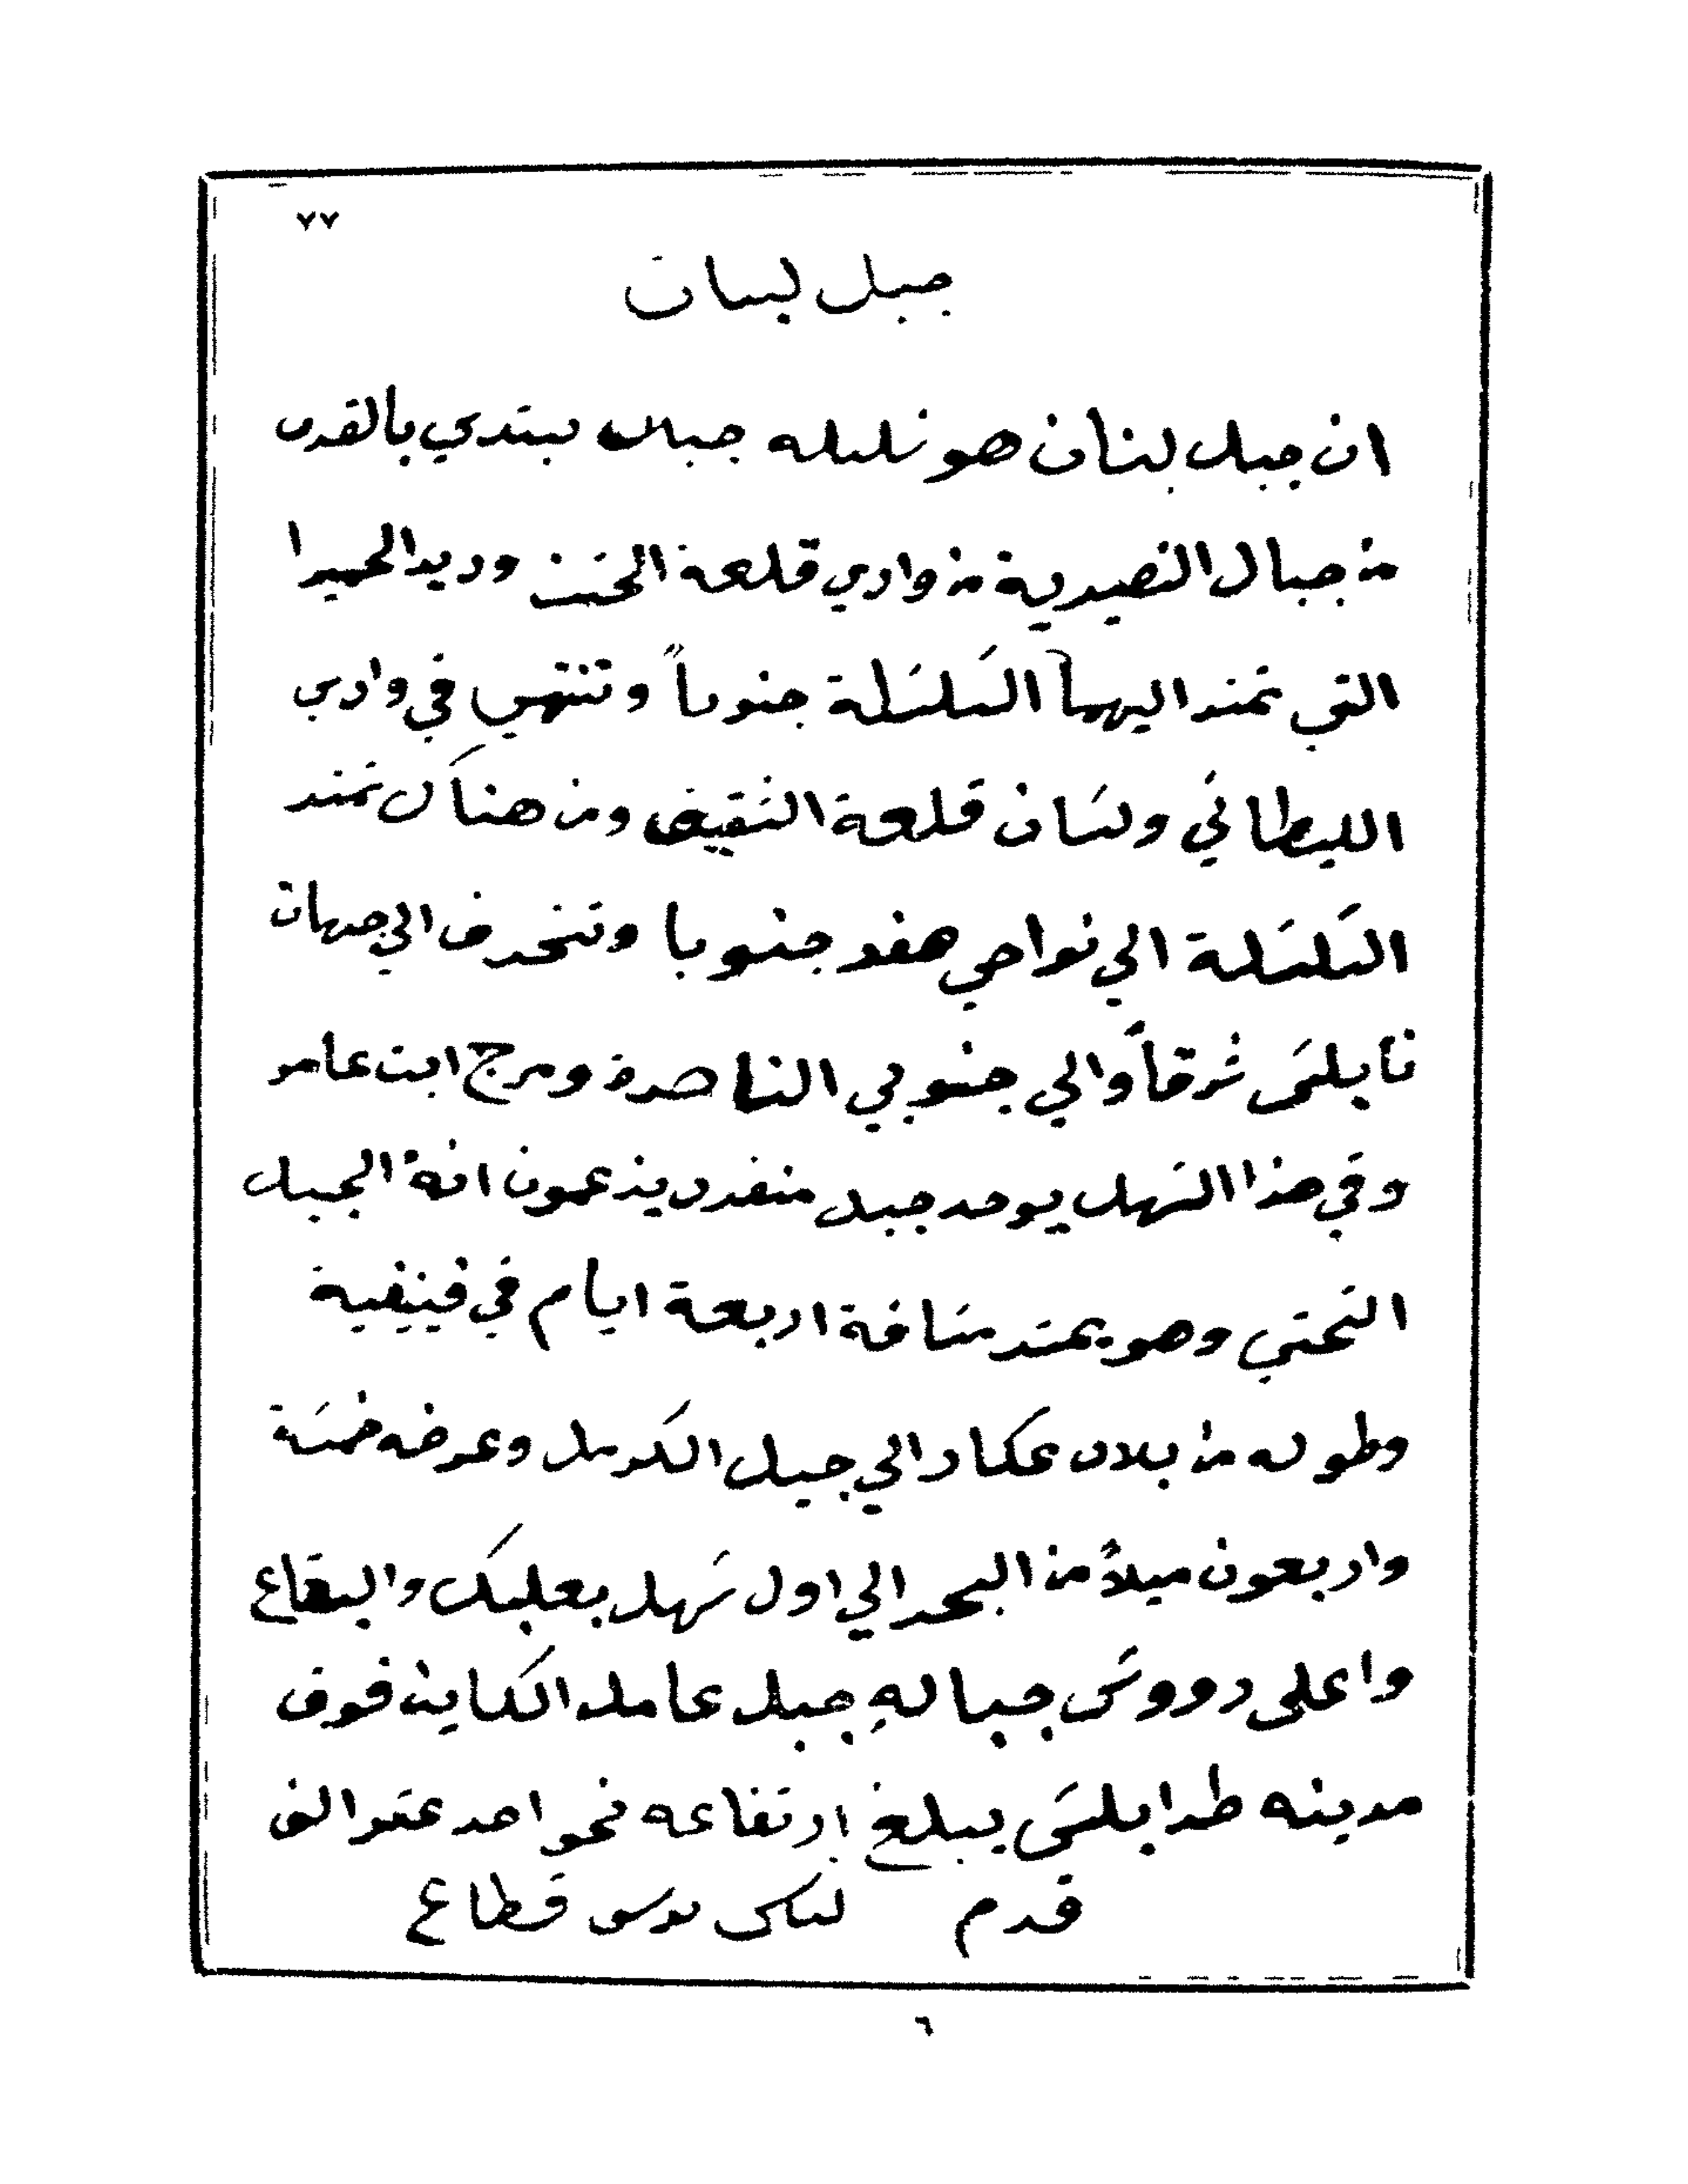 ٧٧
جبل لبنان
ان جبل لبنان هو سلسله جبال يبتدي بالقرب
من جبال النصيرية من وادي قلعة الحصن ودير الحميرا
التي تمتد اليها السلسلة جنوباً وتنتهي في وادي
الليطاني ولسان قلعة الشقيف ومن هناك تمتد
السلسلة الي نواحي صفد جنوبا وتنحرف الي جهات
نابلس شرقاً والي جنوبي الناصرة ومرج ابن عامر
وفي هذا السهل يوجد جبل منفرد يزعمون انهُ الجبل
التحتي وهو يمتد مسافة اربعة ايام في فينيقية
وطوله من بلاد عكار الي جبل الكرمل وعرضه خمسة
واربعون ميلاً من البحر الي اول سهل بعلبك والبقاع
واعلى رووس جباله جبل عامل الكاين فوق
مدينه طرابلس يبلغ ارتفاعه نحو احد عشر الف
قدم قطاع
٦